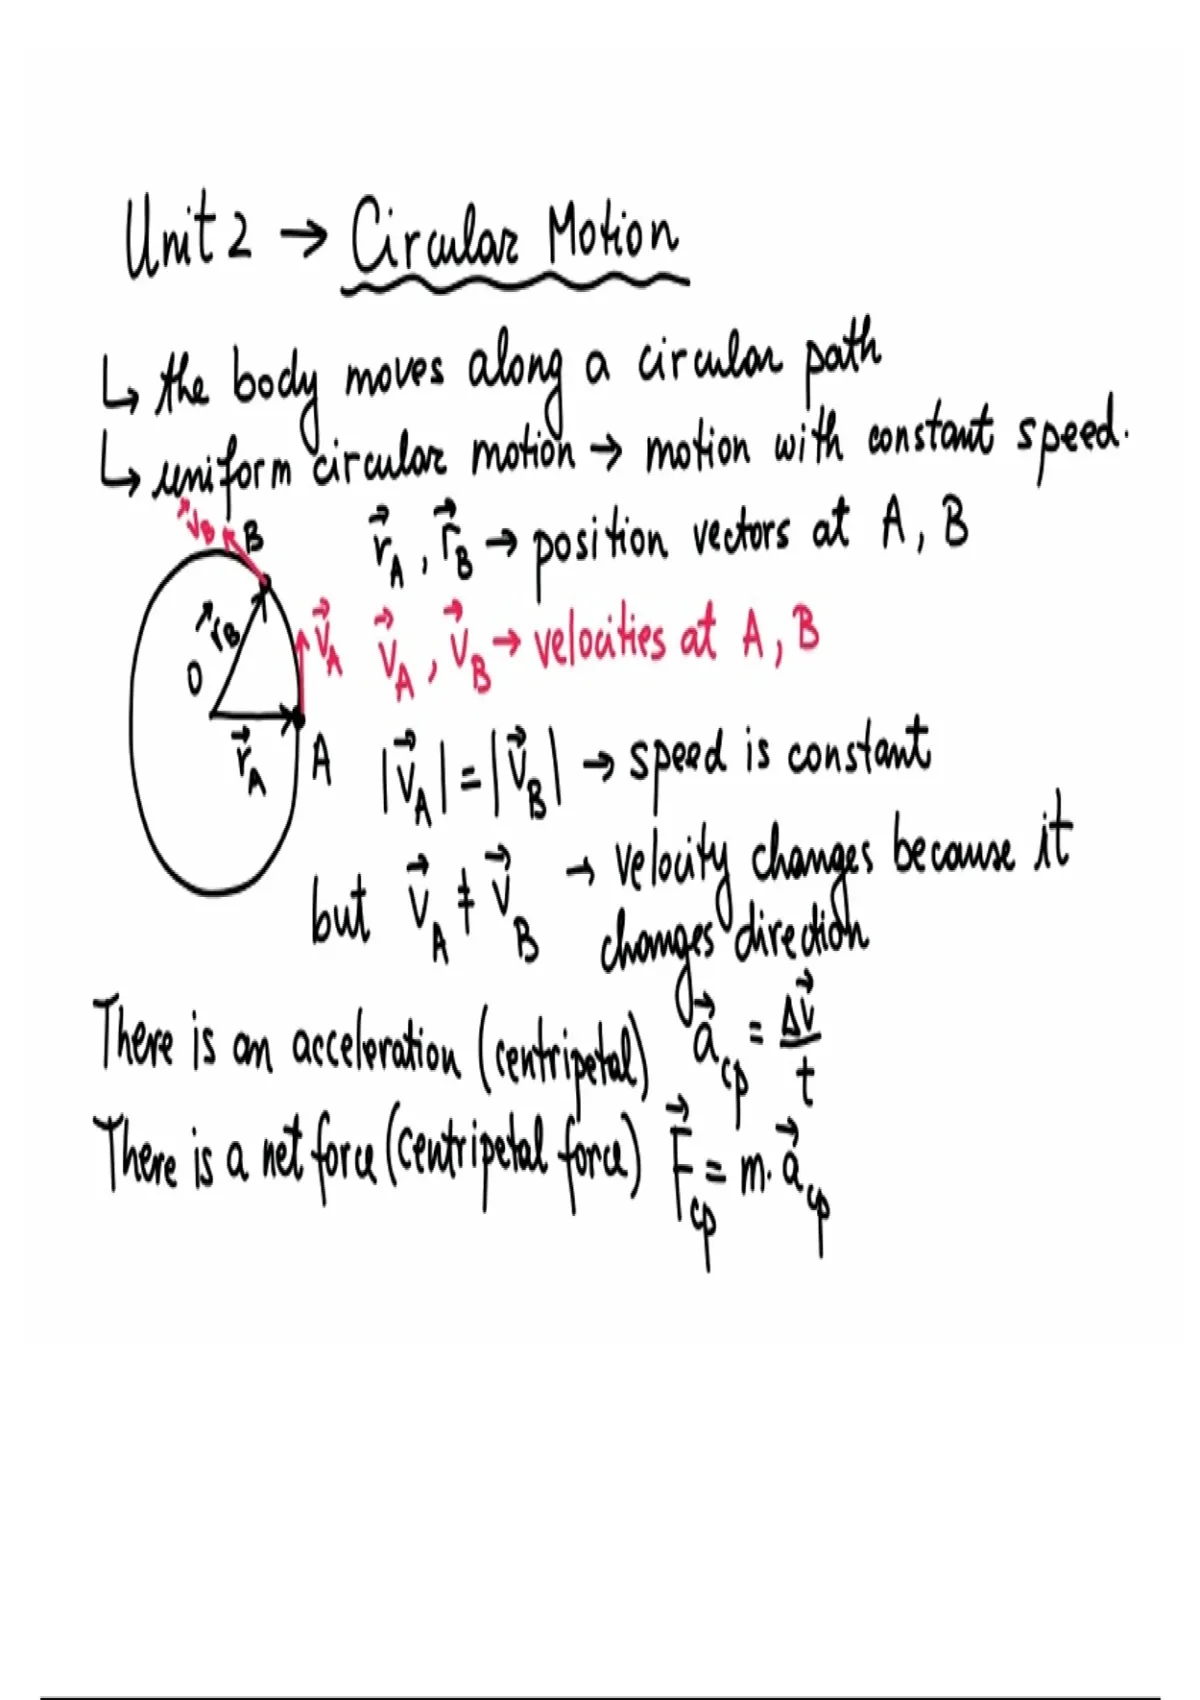 Unit 2 → Circular Motion
↳ the body moves along a circular path
↳ uniform circular motion → motion with constant speed.
v⃗_B B
r⃗_A , r⃗_B → position vectors at A, B
r⃗_B
O
v⃗_A
v⃗_A , v⃗_B → velocities at A, B
r⃗_A A
|v⃗_A| = |v⃗_B| → speed is constant
but v⃗_A ≠ v⃗_B → velocity changes because it
changes direction
There is an acceleration (centripetal) a⃗_cp = Δv⃗/t
There is a net force (centripetal force) F⃗_cp = m · a⃗_cp